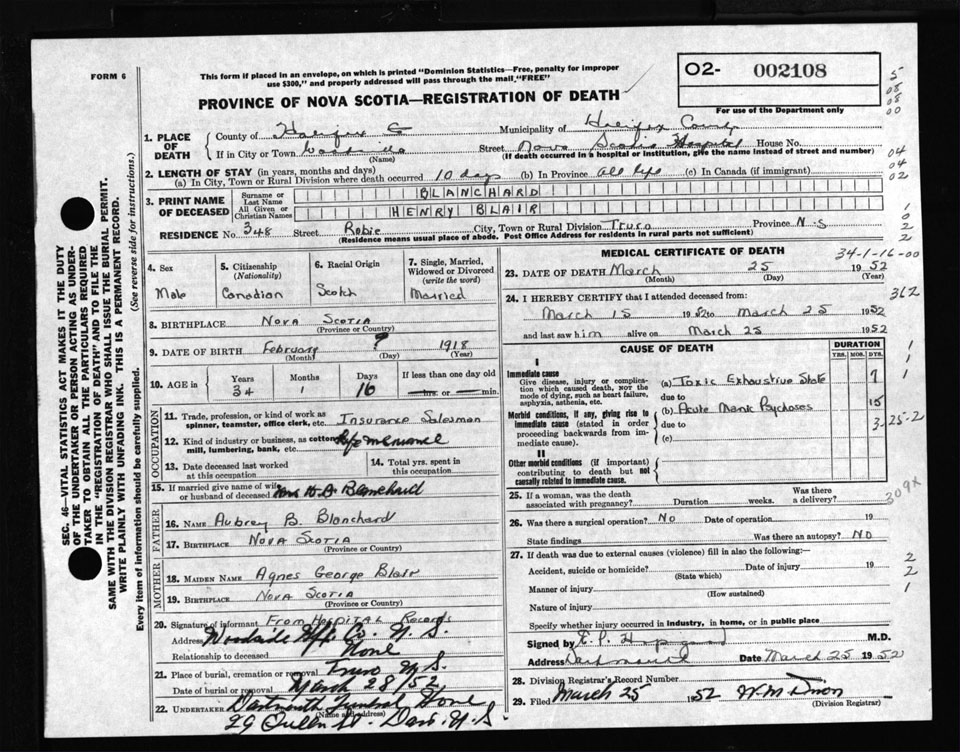 FORM 6
This form if placed in an envelope, on which is printed "Dominion Statistics—Free, penalty for improper
use $300," and properly addressed will pass through the mail, "FREE"
PROVINCE OF NOVA SCOTIA—REGISTRATION OF DEATH
O2- 002108
For use of the Department only
5
08
08
00
1. PLACE OF DEATH
County of Halifax Co Municipality of Halifax County
If in City or Town Woodside Street Nova Scotia Hospital House No.
(Name) (If death occurred in a hospital or institution, give the name instead of street and number)
04
04
02
2. LENGTH OF STAY (in years, months and days)
(a) In City, Town or Rural Division where death occurred 10 days (b) In Province all life (c) In Canada (if immigrant)
3. PRINT NAME OF DECEASED
Surname or Last Name BLANCHARD
All Given or Christian Names HENRY BLAIR
RESIDENCE No. 348 Street Robie City, Town or Rural Division Truro Province N.S
(Residence means usual place of abode. Post Office Address for residents in rural parts not sufficient)
1
0
2
2
4. Sex
Male
5. Citizenship
(Nationality)
Canadian
6. Racial Origin
Scotch
7. Single, Married, Widowed or Divorced
(write the word)
Married
8. BIRTHPLACE Nova Scotia
(Province or Country)
9. DATE OF BIRTH February 9 1918
(Month) (Day) (Year)
10. AGE in
Years Months Days If less than one day old
34 1 16 hrs. or min.
OCCUPATION
11. Trade, profession, or kind of work as
spinner, teamster, office clerk, etc. Insurance Salesman
12. Kind of industry or business, as cotton
mill, lumbering, bank, etc.
13. Date deceased last worked
at this occupation
14. Total yrs. spent in
this occupation
15. If married give name of wife
or husband of deceased Mrs H.A Blanchard
FATHER
16. NAME Aubrey B. Blanchard
17. BIRTHPLACE Nova Scotia
(Province or Country)
MOTHER
18. MAIDEN NAME Agnes George Blair
19. BIRTHPLACE Nova Scotia
(Province or Country)
20. Signature of informant From Hospital Records
Address Woodside Hfx Co. N.S.
Relationship to deceased None
21. Place of burial, cremation or removal Truro N.S.
Date of burial or removal March 28/52
22. UNDERTAKER Dartmouth Funeral Home
(Name and address)
29 Queen St. Dart. N.S.
MEDICAL CERTIFICATE OF DEATH
34-1-16-00
23. DATE OF DEATH March 25 1952
(Month) (Day) (Year)
24. I HEREBY CERTIFY that I attended deceased from:
March 15 1952 to March 25 1952
and last saw him alive on March 25 1952
362
1
1
1
CAUSE OF DEATH
DURATION
YRS. MOS. DYS.
I
Immediate cause
Give disease, injury or complication which caused death, NOT the mode of dying, such as heart failure, asphyxia, asthenia, etc.
(a) Toxic Exhaustive State 7
due to
Morbid conditions, if any, giving rise to immediate cause (stated in order proceeding backwards from immediate cause).
(b) Acute Manic Psychoses 15
due to
(c)
3 25-2
II
Other morbid conditions (if important) contributing to death but not causally related to immediate cause.
25. If a woman, was the death
associated with pregnancy? Duration weeks. Was there a delivery?
309x
26. Was there a surgical operation? No Date of operation 19
State findings Was there an autopsy? No
27. If death was due to external causes (violence) fill in also the following:—
Accident, suicide or homicide? Date of injury 19
(State which)
Manner of injury
(How sustained)
Nature of injury
Specify whether injury occurred in industry, in home, or in public place
2
2
1
Signed by M.D.
Address Dartmouth Date March 25 1952
28. Division Registrar's Record Number
29. Filed March 25 1952
(Division Registrar)
SEC. 46—VITAL STATISTICS ACT MAKES IT THE DUTY
OF THE UNDERTAKER OR PERSON ACTING AS UNDERTAKER TO OBTAIN ALL THE PARTICULARS REQUIRED
IN THE "REGISTRATION OF DEATH" AND TO FILE THE
SAME WITH THE DIVISION REGISTRAR WHO SHALL ISSUE THE BURIAL PERMIT.
WRITE PLAINLY WITH UNFADING INK. THIS IS A PERMANENT RECORD.
Every item of information should be carefully supplied. (See reverse side for instructions.)